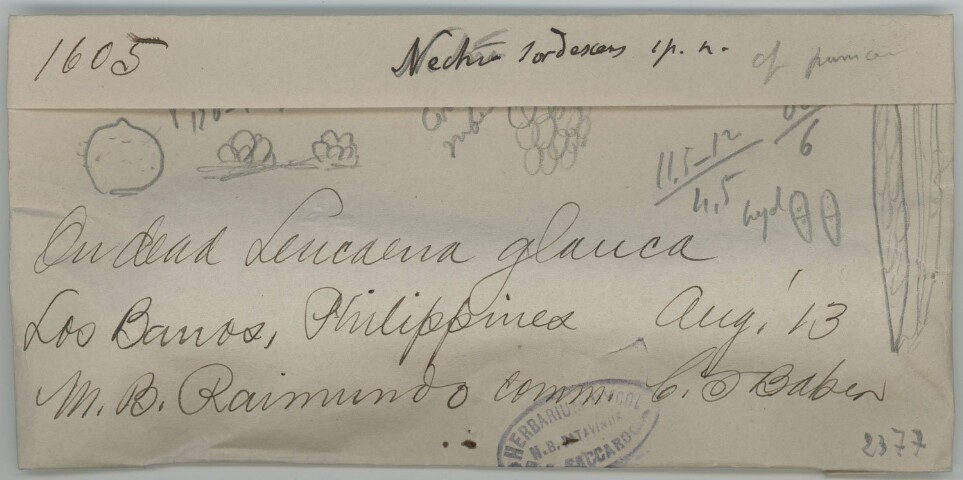 1605 Nectria sordescens sp. n. cf
11.5-12
4.5
6
hyal
On dead Leucaena glauca
Los Banos, Philippines Aug. '13
M. B. Raimundo comm. C. F Baker
HERBARIUM
N. B. PATAVINUS
SACCARDO
2377